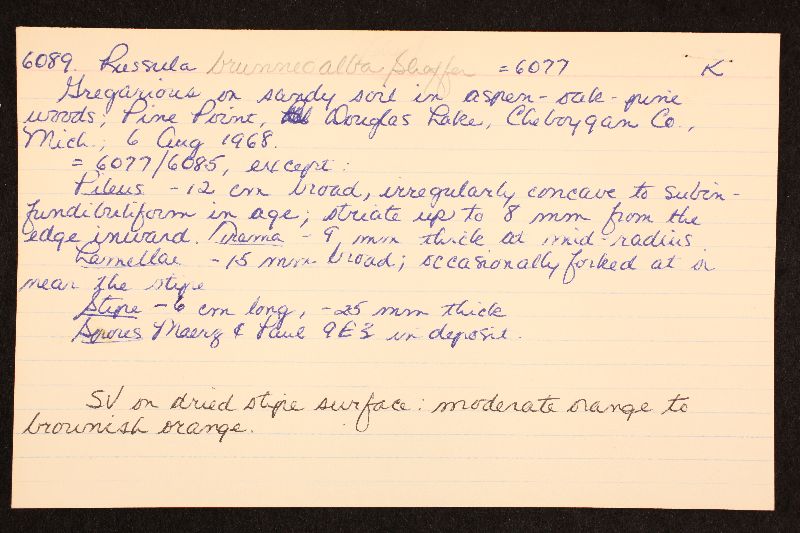 6089. Russula brunneoalba Shaffer = 6077 K
Gregarious on sandy soil in aspen-oak-pine
woods, Pine Point, Douglas Lake, Cheboygan Co.,
Mich.; 6 Aug 1968.
= 6077/6085, except:
Pileus -12 cm broad, irregularly concave to subin-
fundibuliform in age; striate up to 8 mm from the
edge inward. Trama -9 mm thick at mid-radius
Lamellae -15 mm broad; occasionally forked at or
near the stipe
Stipe -6 cm long, -25 mm thick
Spores Maerz & Paul 9E3 in deposit.
SV on dried stipe surface: moderate orange to
brownish orange.